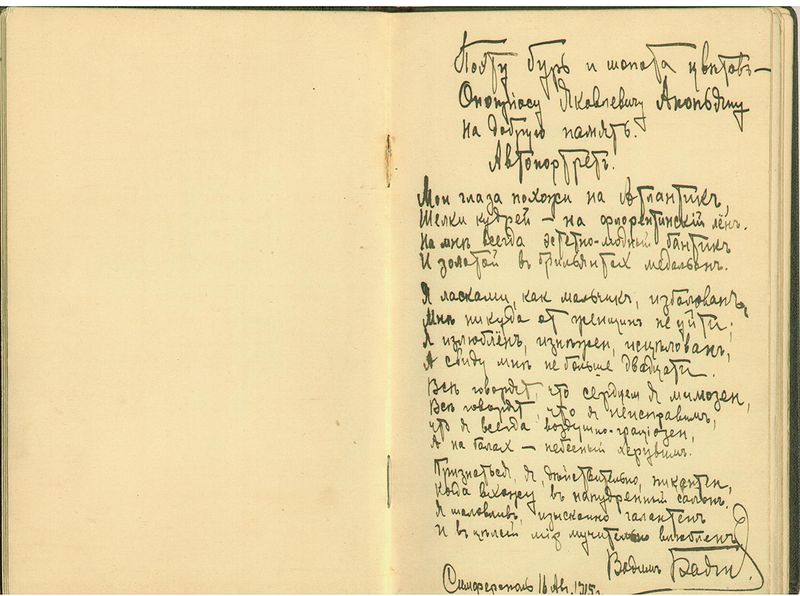 Поэту бурь и шопота цвѣтовъ —
Яковлевичу Акопьянцу
на добрую память.
Автопортретъ.
Мои глаза похожи на Атлантикъ,
Шелки кудрей — на флорентинскій лёнъ.
На мнѣ всегда эстетно-модный бантикъ
И золотой въ брильянтахъ медальонъ.
Я ласками, как мальчикъ, избалованъ,
Мнѣ никуда от женщинъ не уйти;
Я излюбленъ, изнѣжен, исцѣлован,
А съиду мнѣ не больше двадцати.
Всѣ говорят, что сердцем я мимозен,
Всѣ говорят, что я неисправимъ,
Что я всегда воздушно-граціозен,
А на балах — небесный херувим.
Признаться, я, дѣйствительно, пикантен,
Когда вхожу въ напудренный салонъ.
Я шаловливъ, изысканно галантенъ
И въ цѣлый мір мучительно влюбленъ.
Вадимъ Баян.
Симферополь 16 Авг. 1915 г.